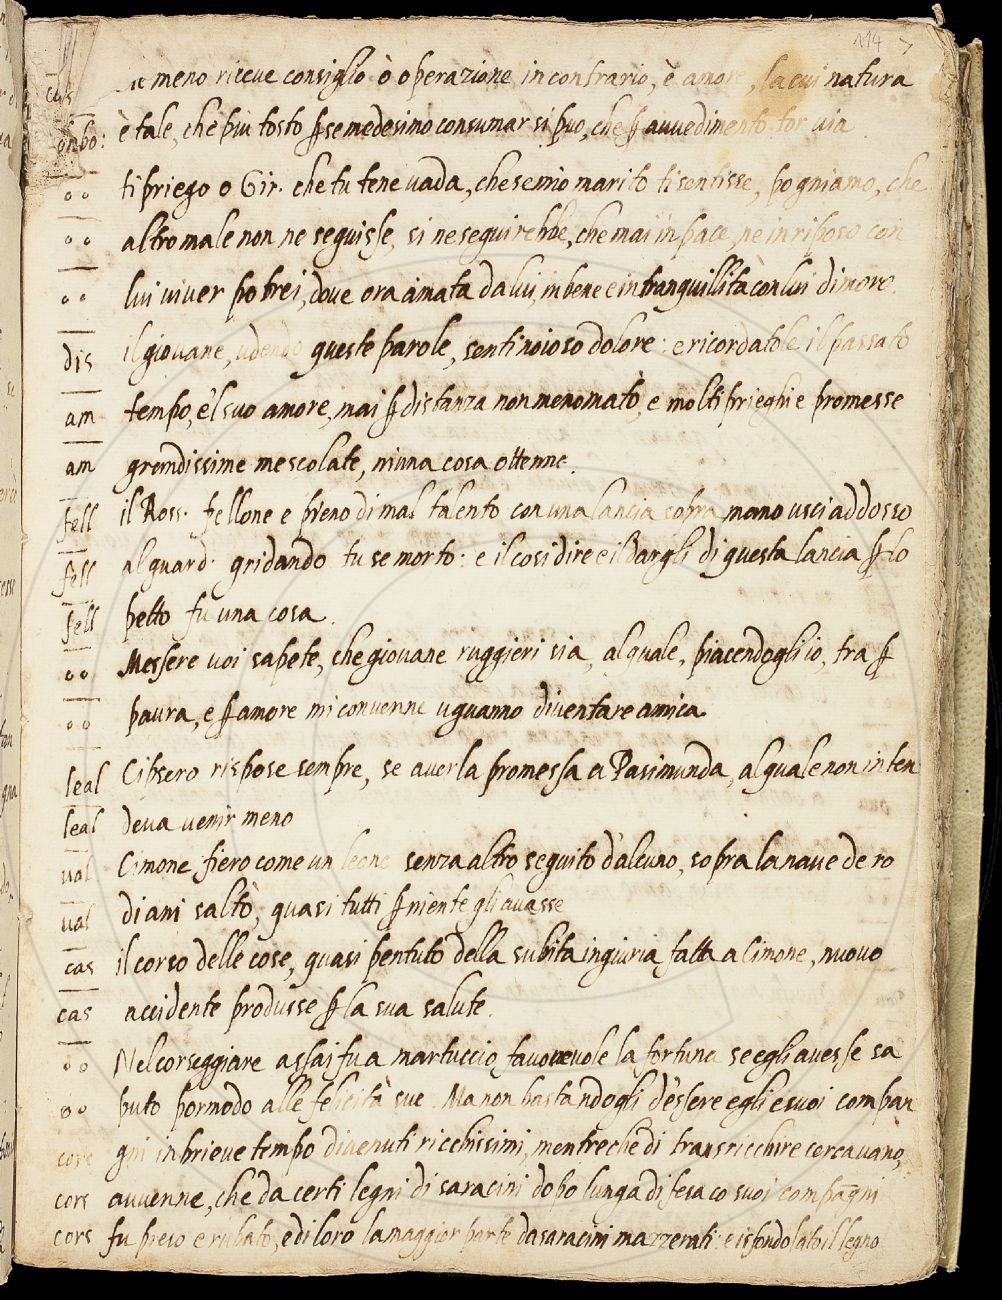 114 7
cas meno riceve consiglio ò operazione in contrario, è amore, la cui natura
onbo: è tale, che piu tosto ꝑ se medesimo consumar si puo, che ꝑ avvedimento tor via
o o ti priego o Gir. che tu te ne vada, che se mio marito ti sentisse, pogniamo, che
o o altro male non ne seguisse, si ne seguirebbe, che mai in pace, ne in riposo con
o o lui viver potrei, dove ora amata da lui, in bene e in tranquillità con lui dimoro.
dis il giovane, udendo queste parole, senti noioso dolore: e ricordatole il passato
am tempo, e'l suo amore, mai ꝑ distanza non menomatò, e molti prieghi e promesse
am grandissime mescolate, niuna cosa ottenne.
fell il Ross. fellone e pieno di mal talento con una lancia sopra mano usci addosso
fell al guard. gridando tu se morto: e il cosi dire e il dargli di questa lancia ꝑ lo
fell petto fu una cosa.
o o Messere voi sapete, che giovane ruggieri sia, al quale, piacendogli io, tra ꝑ
o o paura, e ꝑ amore mi convenne uguanno diventare amica.
leal Cipseo rispose sempre, se averla promessa a Pasimunda, al quale non inten
leal deva venir meno
val Cimone fiero come un leone senza altro seguito d'alcuno, sopra la nave de ro
val diani saltò, quasi tutti ꝑ niente gli avasse
cas il corso delle cose, quasi pentuto della subita ingiuria fatta a Cimone, nuovo
cas accidente produsse ꝑ la sua salute.
o o Nel corseggiare assai fu a martuccio favorevole la fortuna se egli avesse sa
o o puto por modo alle felicità sue. Ma non bastandogli d'essere egli e suoi compan
cors gni in brieve tempo divenuti ricchissimi, mentre che di transricchire cercavano,
cors avvenne, che da certi legni di saracini dopo lunga difesa co suoi compagni
cors fu preso e rubato, e di loro la maggior parte da saracini mazzerati: e isfondolato il legno